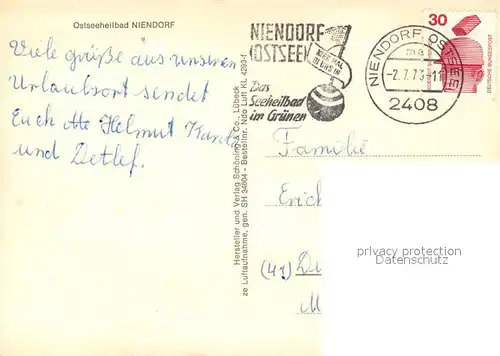 Ostseeheilbad NIENDORF
Viele grüße aus unseren
Urlaubsort sendet
Euch Helmut
und Detlef.
Hersteller und Verlag Schöning & Co., Lübeck
ze Luftaufnahme, gen. SH 34604 - Bestellnr. Ndo Luft KL 4293-1
NIENDORF
(OSTSEE)
KIEK MAL
BI UNS IN
Das
Seeheilbad
im Grünen
NIENDORF, OSTSEE
ma
-2.7.73-11
2408
30
DEUTSCHE BUNDESPOST
Familie
Erich
(41) D
M
privacy protection
Datenschutz